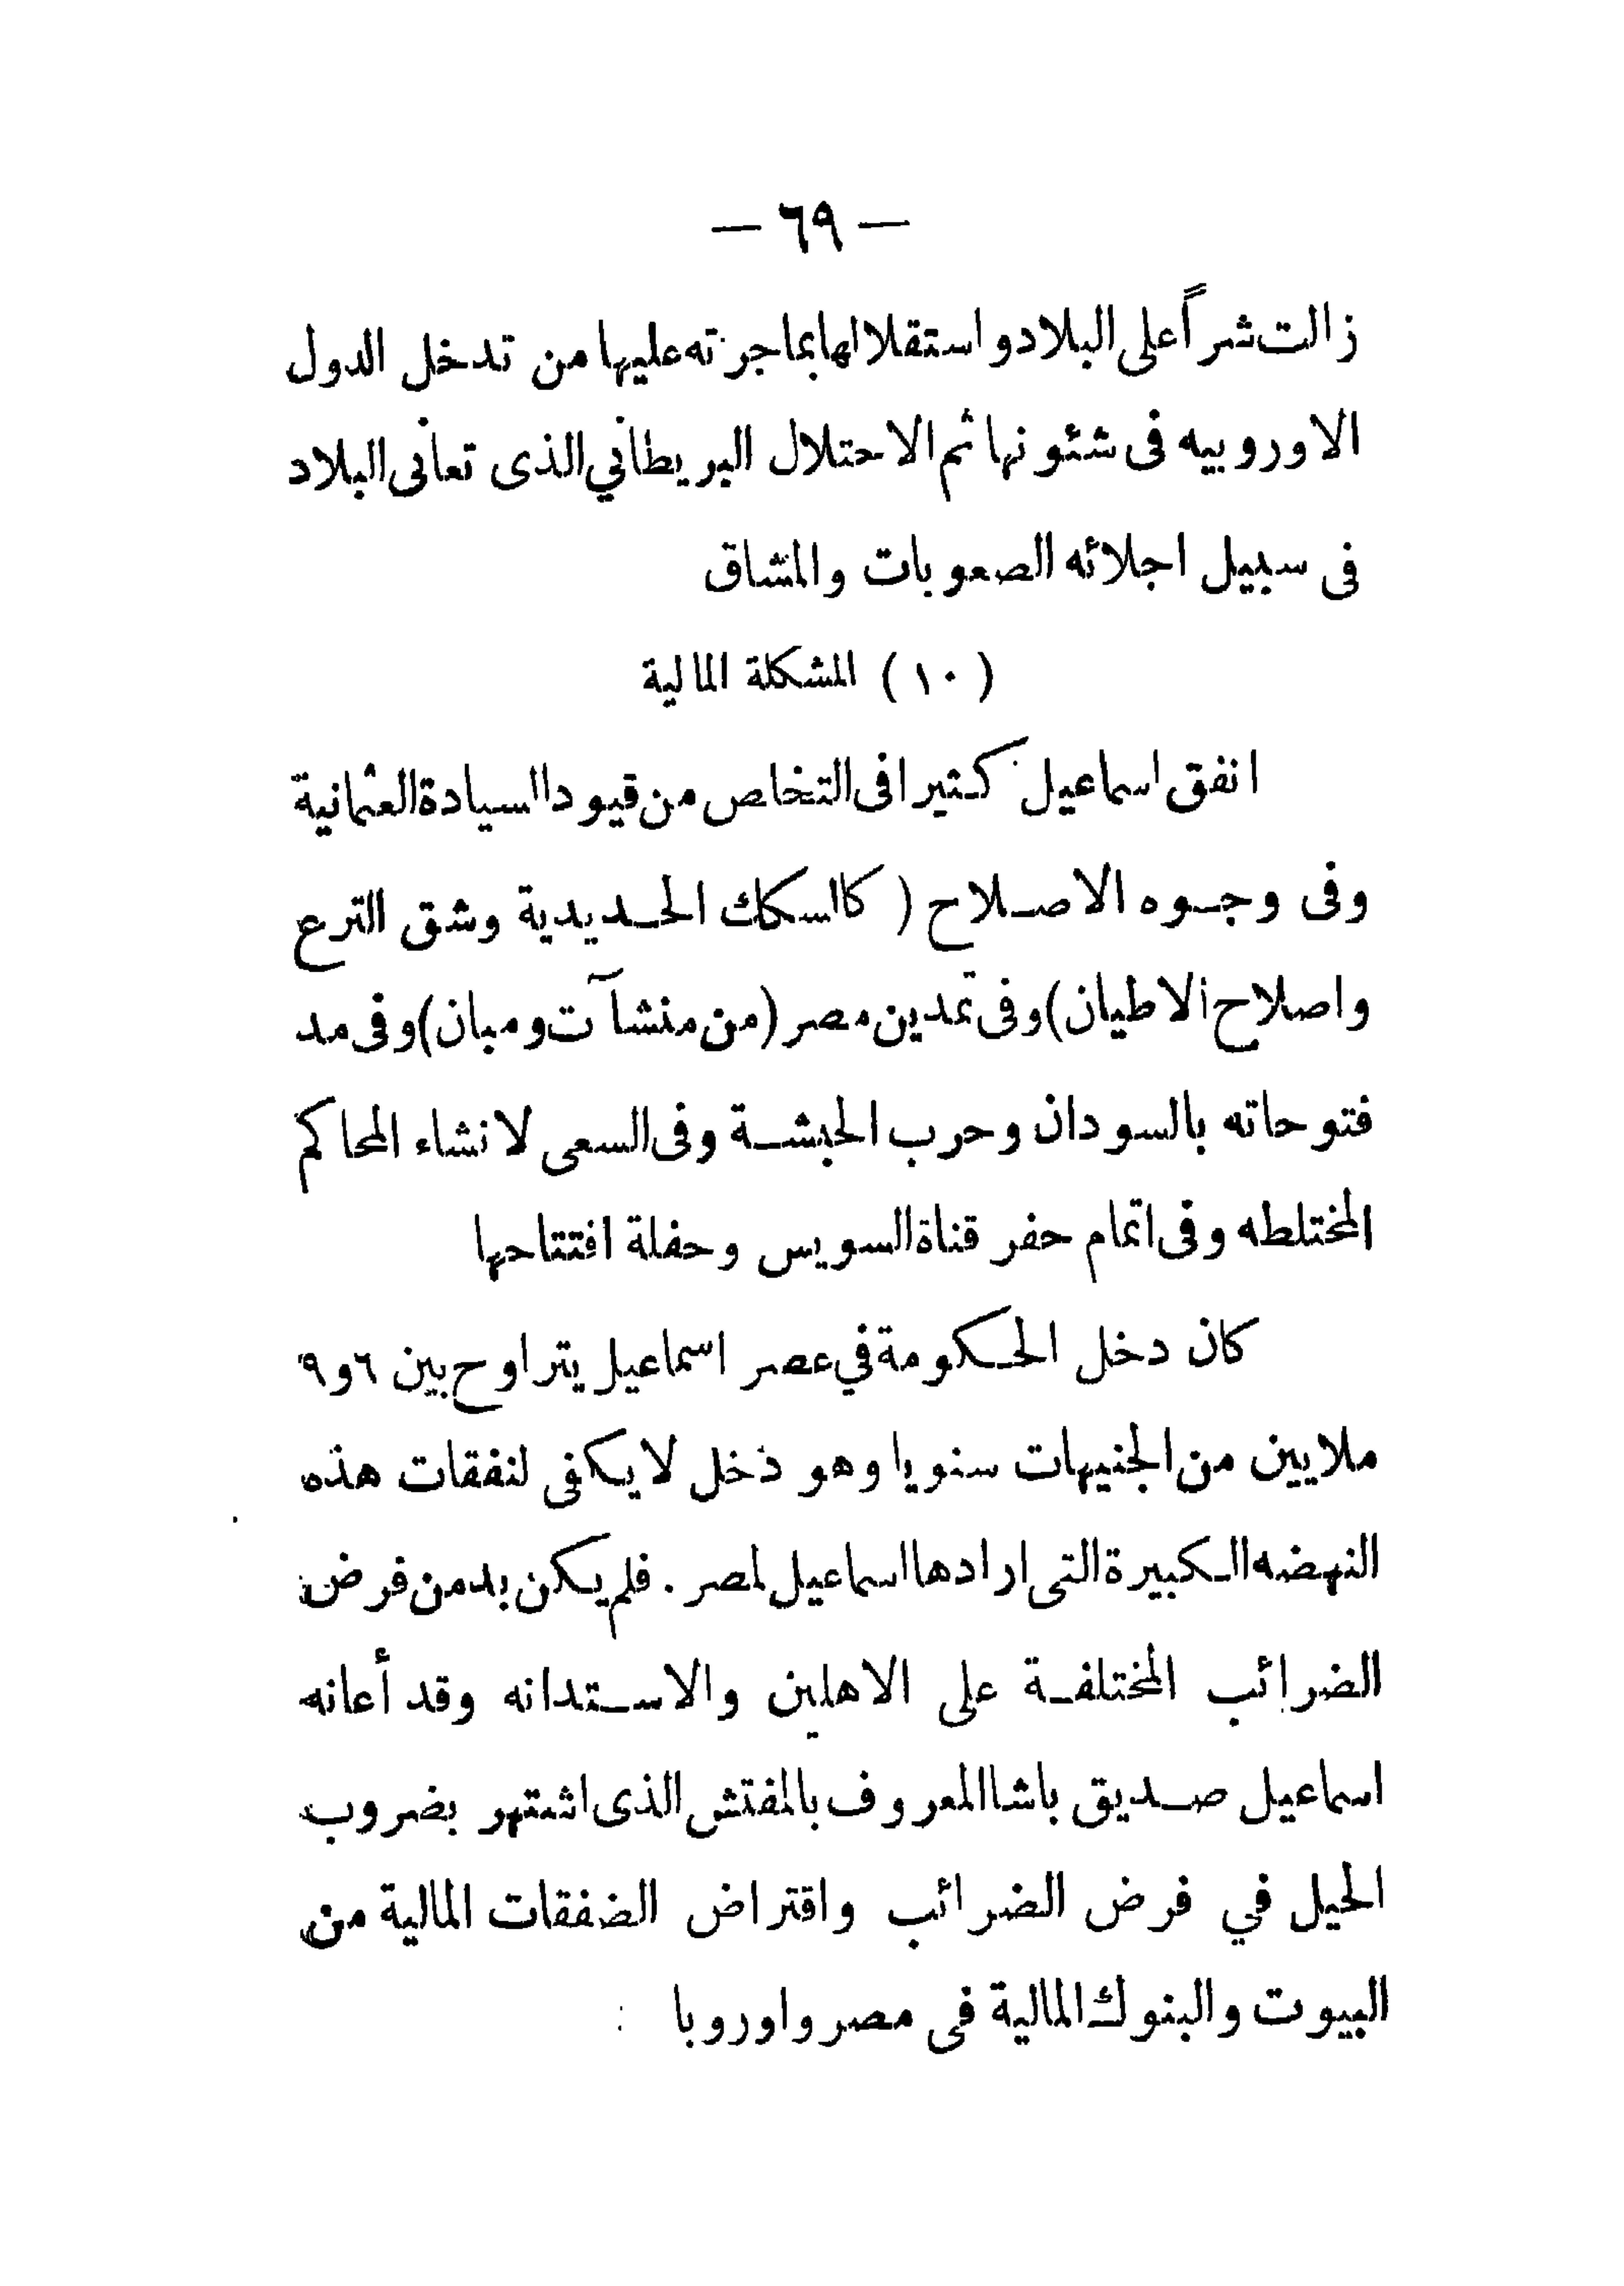 — ٦٩ —
زالت شراً على البلاد واستقلالها بما جرته عليها من تدخل الدول
الاوروبيه فى شئونها ثم الاحتلال البريطاني الذى تعانى البلاد
فى سبيل اجلائه الصعوبات والمشاق
( ١٠ ) المشكلة المالية
انفق اسماعيل كثيرا فى التخلص من قيود السيادة العثمانية
وفى وجوه الاصلاح ( كالسكك الحديدية وشق الترع
واصلاح الاطيان ) وفى تمدين مصر ( من منشآت ومبان ) وفى مد
فتوحاته بالسودان وحرب الحبشة وفى السعى لانشاء المحاكم
المختلطه وفى اتمام حفر قناة السويس وحفلة افتتاحها
كان دخل الحكومة في عصر اسماعيل يتراوح بين ٦ و ٩
ملايين من الجنيهات سنويا وهو دخل لا يكفى لنفقات هذه
النهضه الكبيرة التى ارادها اسماعيل لمصر . فلم يكن بد من فرض
الضرائب المختلفة على الاهلين والاستدانه وقد أعانه
اسماعيل صديق باشا المعروف بالمفتش الذى اشتهر بضروب
الحيل في فرض الضرائب واقتراض الضفقات المالية من
البيوت والبنوك المالية فى مصر واوروبا :